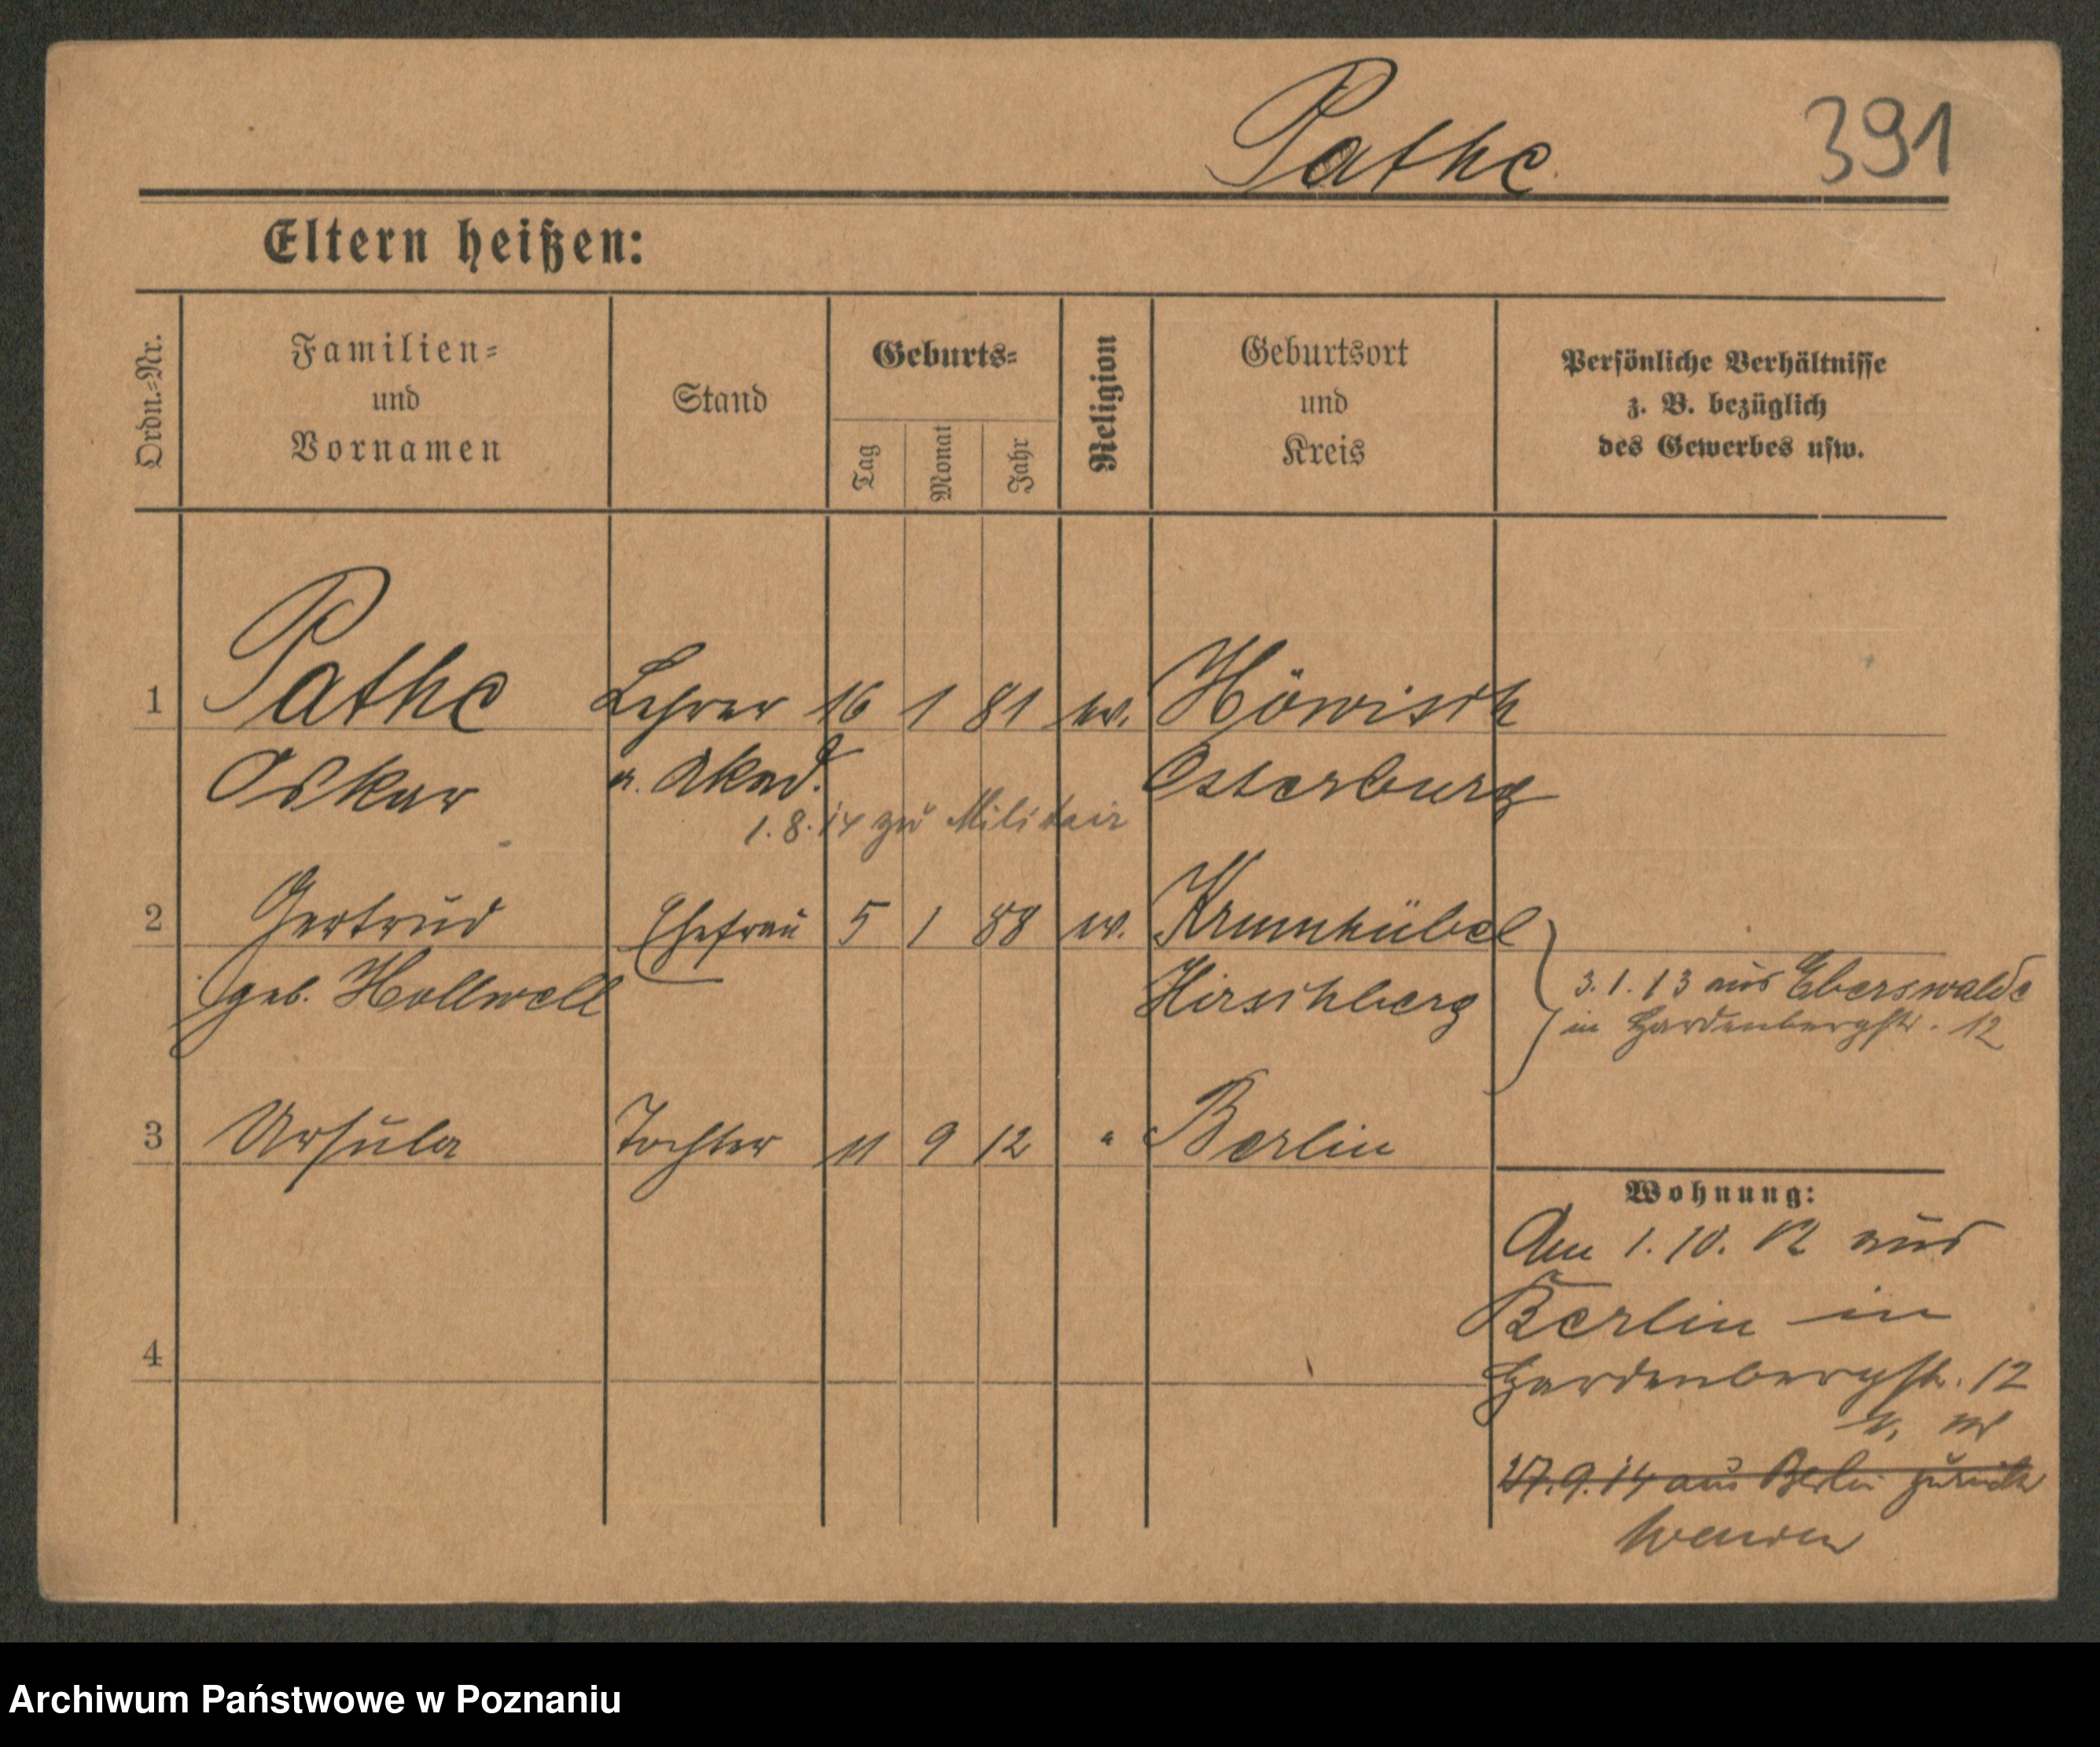 Pathe 391
Eltern heißen:
Ordn.-Nr.
Familien-
und
Vornamen
Stand
Geburts-
Tag
Monat
Jahr
Religion
Geburtsort
und
Kreis
Persönliche Verhältnisse
z. B. bezüglich
des Gewerbes usw.
1 Pathe Lehrer 16 1 81 ev. Höwisch
Oskar a. Akad. Osterburg
1.8.14 zu Militair
2 Gertrud Ehefrau 5 1 88 ev. Krumhübel
geb. Hollwell Hirschberg
3.1.13 aus Eberswalde
in Hardenbergstr. 12
3 Ursula Tochter 11 9 12 " Berlin
Wohnung:
Am 1.10.12 aus
Berlin in
4
Hardenbergstr. 12
27.9.14 aus Berlin zurück
wenden
Archiwum Państwowe w Poznaniu